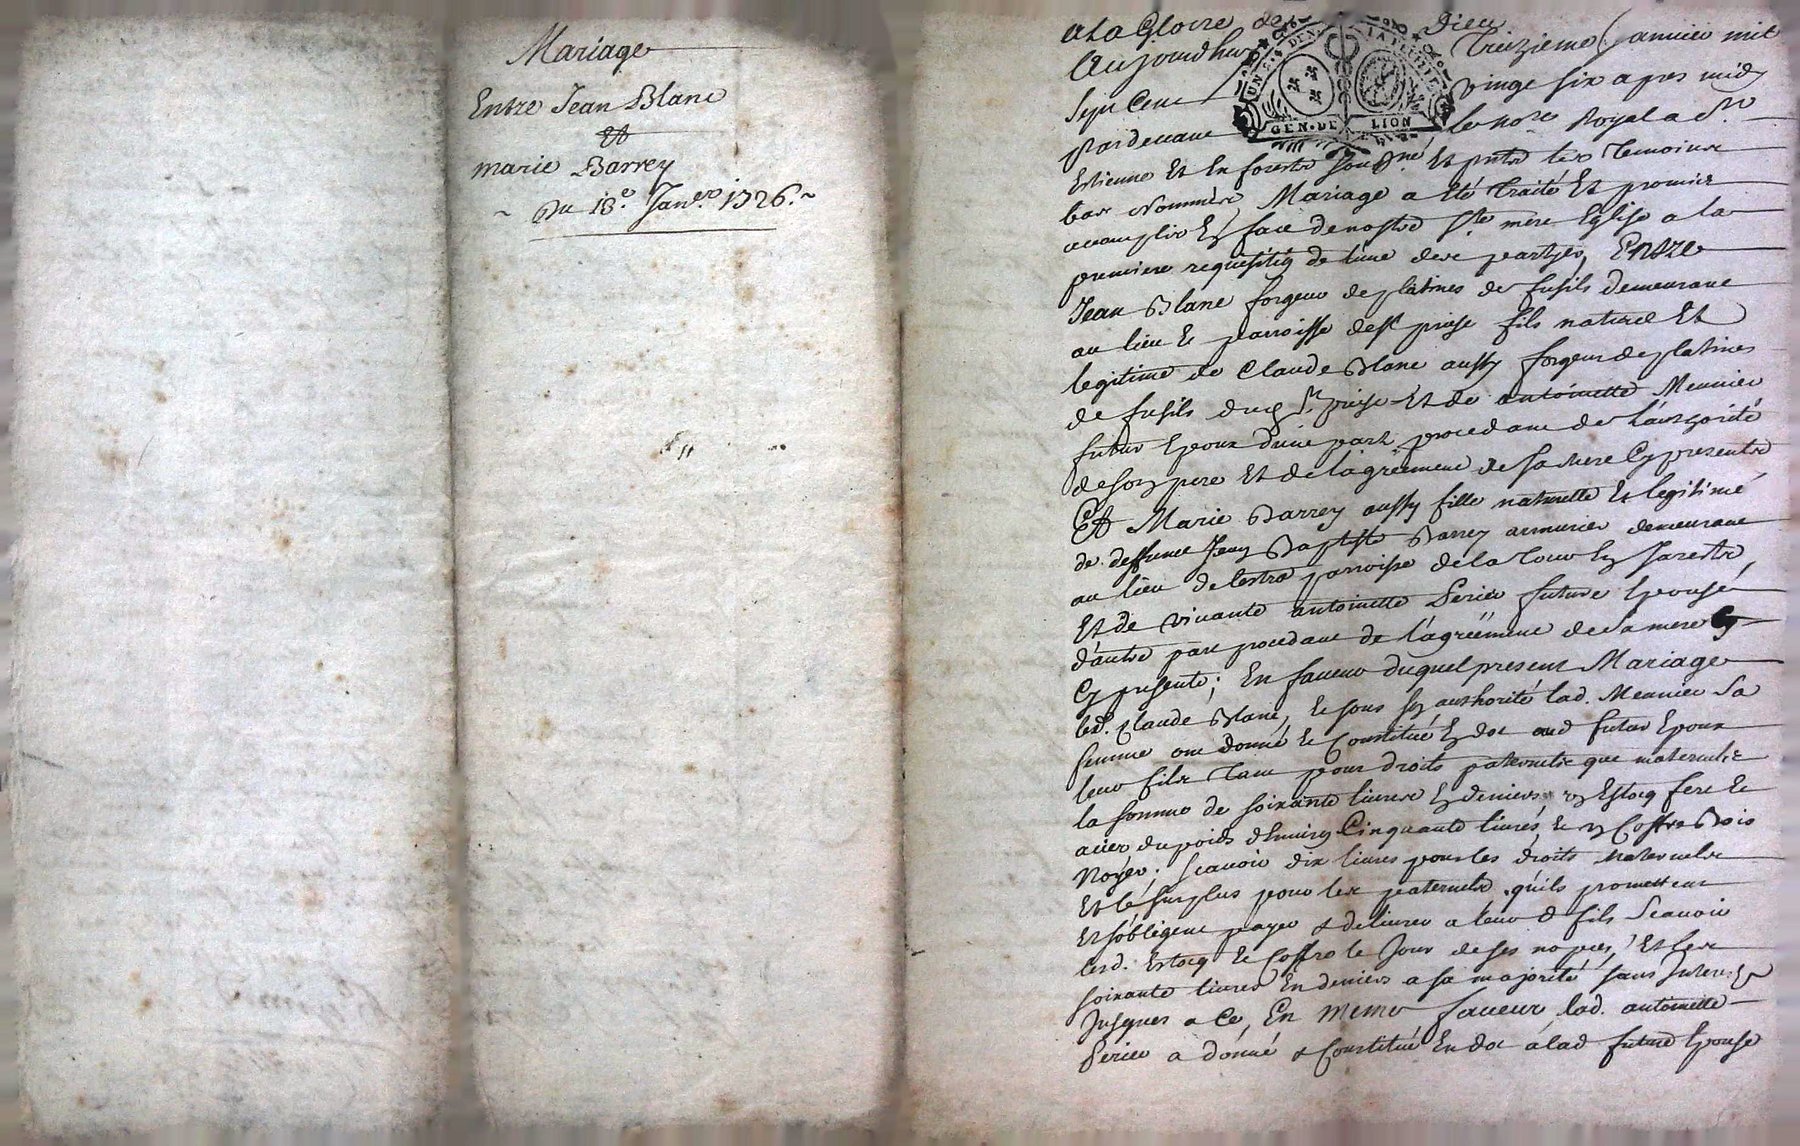 Mariage
Entre Jean Blanc
Et
marie Barrey
~ Du 13.e Janv.er 1726. ~
a La Gloire de Dieu
Aujourdhuy Treizieme Janvier mil
Sept Cent vingt six apres midy
Pardevant le no.re Royal a S.t
Estienne Et En forestz Soub.né Et pntz les Temoins
bas Nommés, Mariage a Eté Traité Et promis
accomplir En face de nostre S.te mere Eglise a la
premiere requisition de lune des parties, Entre
Jean Blanc forgeur de platines de fusils demeurant
au lieu & parroisse de S.t priest fils naturel Et
legitime de Claude Blanc aussy forgeur de platines
de fusils dud S.t priest Et de antoinette Meunier
futur Epoux dune part, procedant de lauthorité
de son pere Et de lagréement de sa Mere Cy presente
Et Marie Barrey aussy fille naturelle Et legitime
de deffunct Jean Baptiste Barrey armurier demeurant
au lieu de lestra parroisse de la Tour En Jarestz,
Et de vivante antoinette Perier future Epouse
dautre part procedant de lagréement de Sa mere
Cy presente; En faveur duquel present Mariage
led. Claude Blanc, & sous son authorité lad. Meunier Sa
femme ont donné & Constitué En dot aud futur Epoux
leur fils Tant pour droits paternels que maternels
la somme de soixante livres En deniers un Estocq fere &
acier du poids denviron Cinquante livres, & un Coffre Bois
Noyer; Scavoir dix livres pour les droits Maternels
Et le surplus pour les paternels, quils promettent
Et sobligent payer & delivrer a leur d fils Scavoir
lesd. Estocq & Coffre le Jour de ses nopces, Et les
soixante livres En deniers a sa majorité sans Interest
Jusques a Ce, En meme faveur lad. antoinette
Perier a donné & Constitué En dot a lad future Epouse
GEN. DE LION